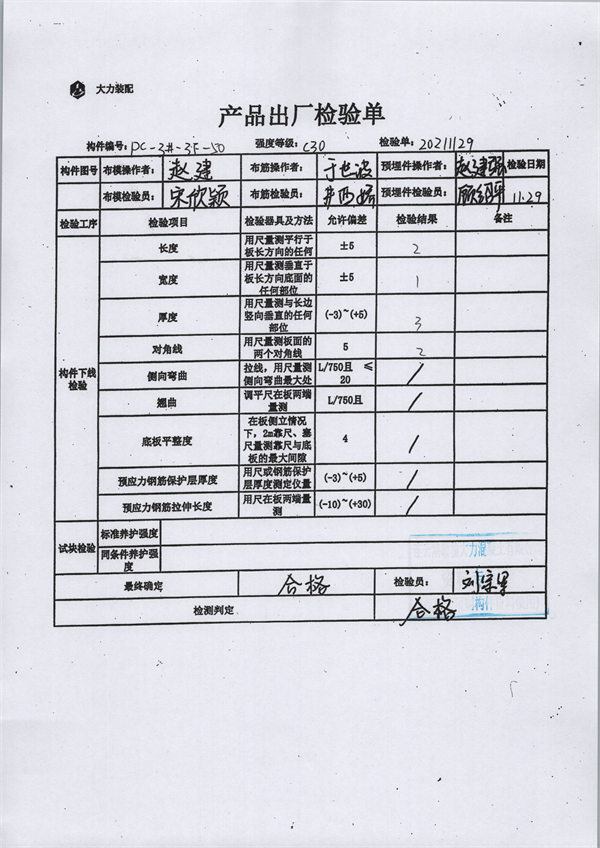 大力装配
产品出厂检验单
构件编号: PC-3#-3F-50 强度等级: C30 检验单: 20211129
构件图号 布模操作者: 赵建 布筋操作者: 于世波 预埋件操作者: 赵建强 检验日期
布模检验员: 宋欣颖 布筋检验员: 预埋件检验员: 11.29
检验工序 检验项目 检验器具及方法 允许偏差 检验结果 备注
构件下线检验
长度 用尺量测平行于板长方向的任何 ±5 2
宽度 用尺量测垂直于板长方向底面的任何部位 ±5 1
厚度 用尺量测与长边竖向垂直的任何部位 (-3)~(+5) 3
对角线 用尺量测板面的两个对角线 5 2
侧向弯曲 拉线，用尺量测侧向弯曲最大处 L/750且 ≤20 /
翘曲 调平尺在板两端量测 L/750且 /
底板平整度 在板侧立情况下，2m靠尺、塞尺量测靠尺与底板的最大间隙 4 /
预应力钢筋保护层厚度 用尺或钢筋保护层厚度测定仪量 (-3)~(+5) /
预应力钢筋拉伸长度 用尺在板两端量测 (-10)~(+30) /
试块检验 标准养护强度
同条件养护强度
最终确定 合格 检验员:
检测判定 合格